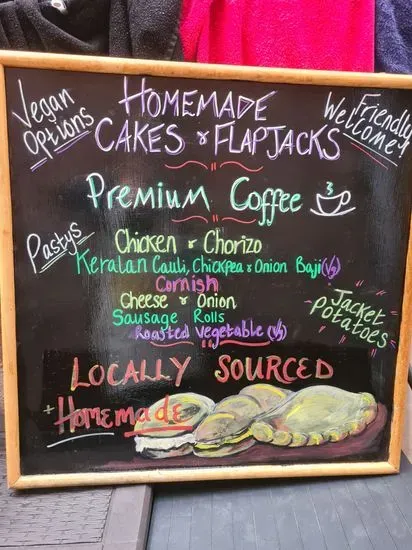 Vegan
Options
HOMEMADE
CAKES & FLAPJACKS
Friendly
Welcome!
Premium Coffee
Pastys
Chicken & Chorizo
Keralan Cauli, Chickpea & Onion Baji (Vg)
Cornish
Cheese & Onion
Sausage Rolls
Roasted Vegetable (Vg)
Jacket
Potatoes
LOCALLY SOURCED
+ Homemade